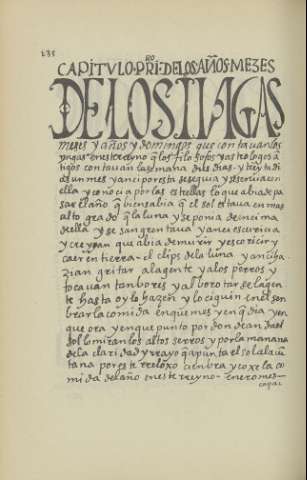 235
CAPÍTVLO · PRO RI · DE LOS AÑOS · MEZES
DE LOS INGAS
mezes y años y domingos que contauan los
yngas en este rreyno q̃ los filosofos y astrologos a
tigos contauan la semana dies dias · y treynta di
as un mes y anci por esta
ella y conocia por las estrellas lo que abia de pa
sar el año q̃ bien sabia q̃ el sol estaua en mas
alto grado q̃ la luna y se ponia de encima
de ella y se sangrentaua y anci escuricia
y creyyan que abia de murir y escoricir y
caer en tierra · el clips de la luna y anci ha
zian gritar a la gente y a los perros y
tocauan tanbores y alborotar se la gen
te hasta oy lo hazen y lo ciguin en el sen
brar la comida en que mes y en q̃ dia y en
que ora y en que punto por donde anda el
sol lo miran los altos serros y por la manana
de la claridad y rrayo q̃ apunta el sol a la uẽ
tana por este rreloxo cienbra y coxe la co
mida del año en este rreyno · enero mes —
capac